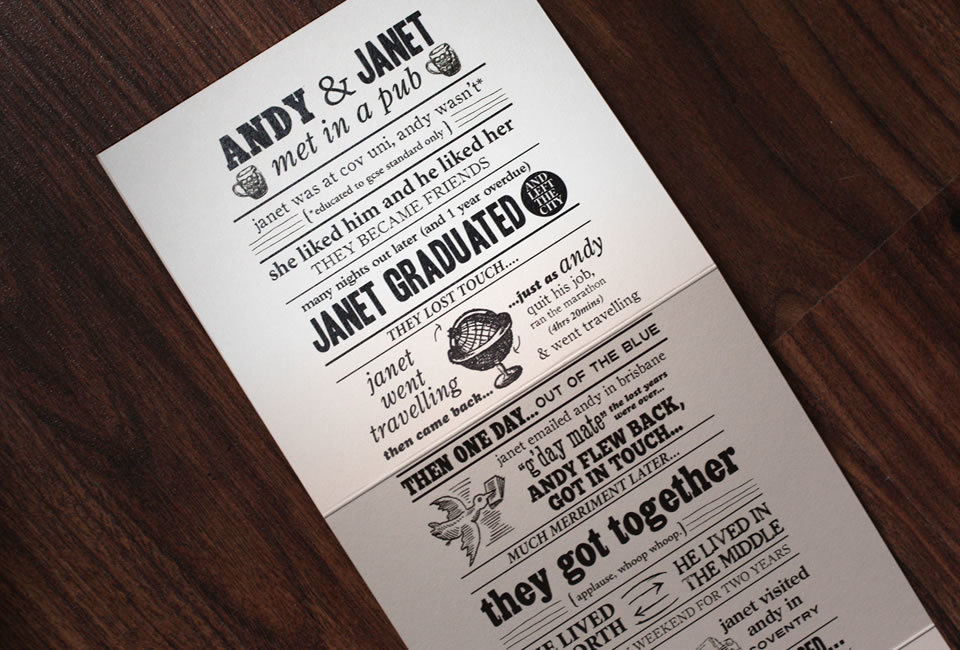 ANDY & JANET
met in a pub
janet was at cov uni, andy wasn't*
{*educated to gcse standard only}
she liked him and he liked her
THEY BECAME FRIENDS
many nights out later (and 1 year overdue)
JANET GRADUATED
AND
LEFT
THE
CITY
THEY LOST TOUCH....
janet
went
travelling
then came back...
...just as andy
quit his job,
ran the marathon
(4hrs 20mins)
& went travelling
THEN ONE DAY... OUT OF THE BLUE
janet emailed andy in brisbane
"g'day mate" the lost years
were over...
ANDY FLEW BACK,
GOT IN TOUCH...
MUCH MERRIMENT LATER...
they got together
{applause, whoop whoop.}
LIVED
HE LIVED IN
THE MIDDLE
WEEKEND FOR TWO YEARS
janet visited
andy in
COVENTRY